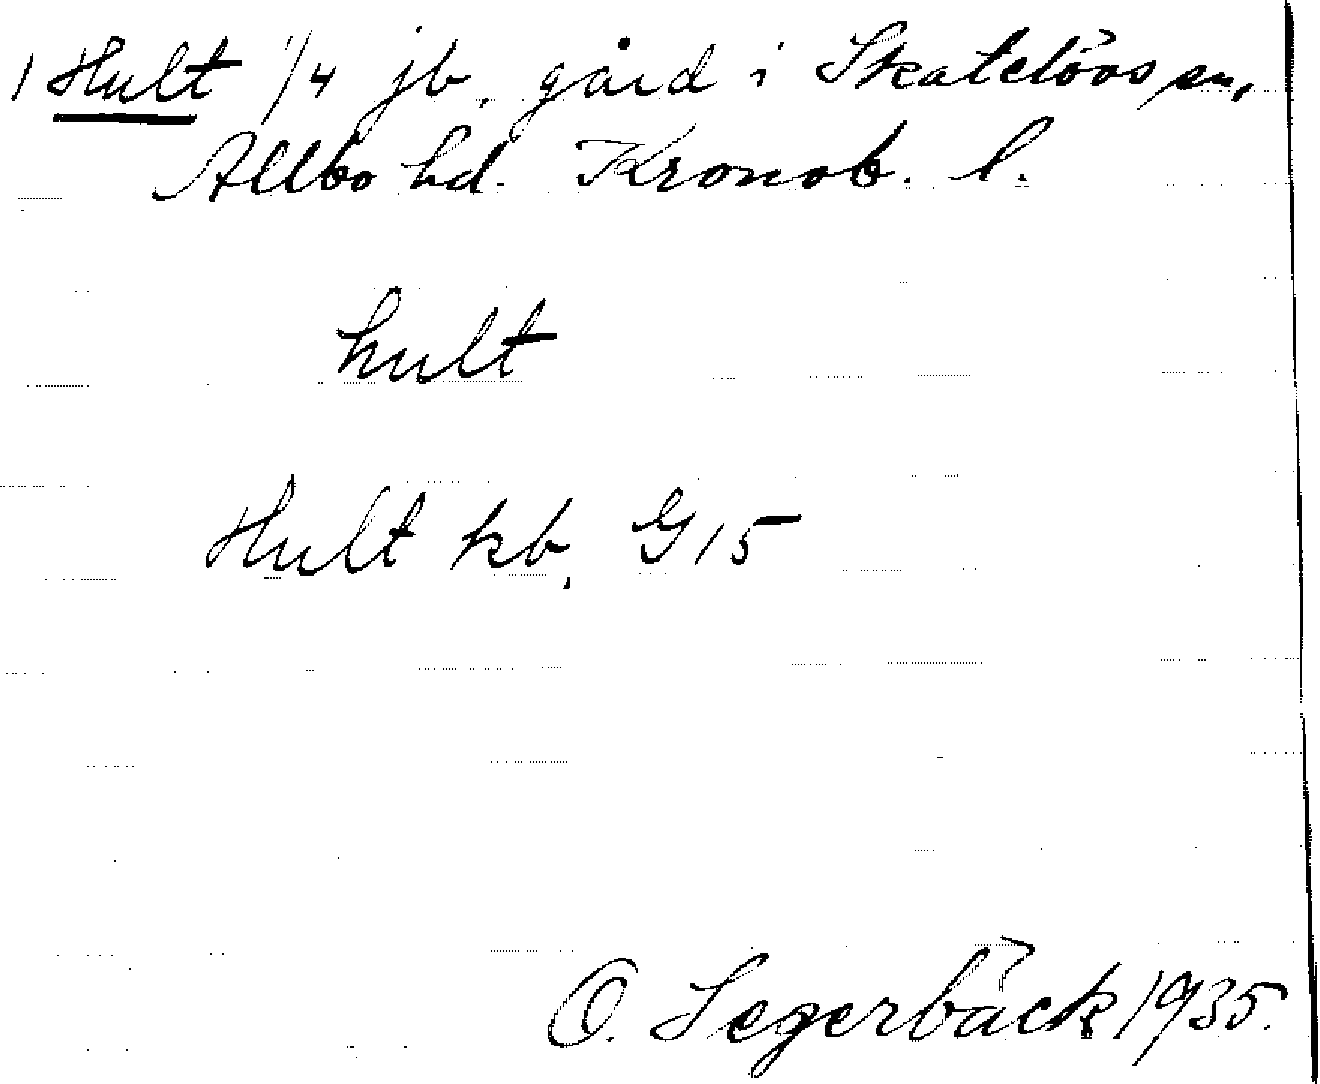 1 Hult 1/4 jb. gård i Skatelövs sn,
Allbo hd. Kronob. l.
hult
Hult kb. G15
O. Segerbäck 1935.